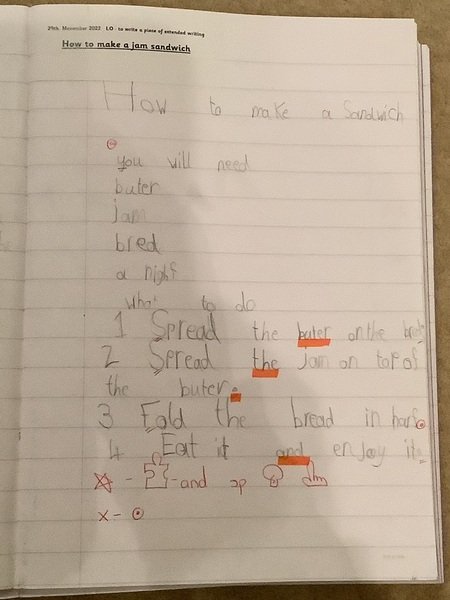 29th November 2022 LO - to write a piece of extended writing
How to make a jam sandwich
How to make a Sandwich
you will need
buter
jam
bred
a nighf
what to do
1 Spread the buter on the
2 Spread the jam on top of
the buter.
3 Fold the bread in harf.
4 Eat it and enjoy it.
-and
x-